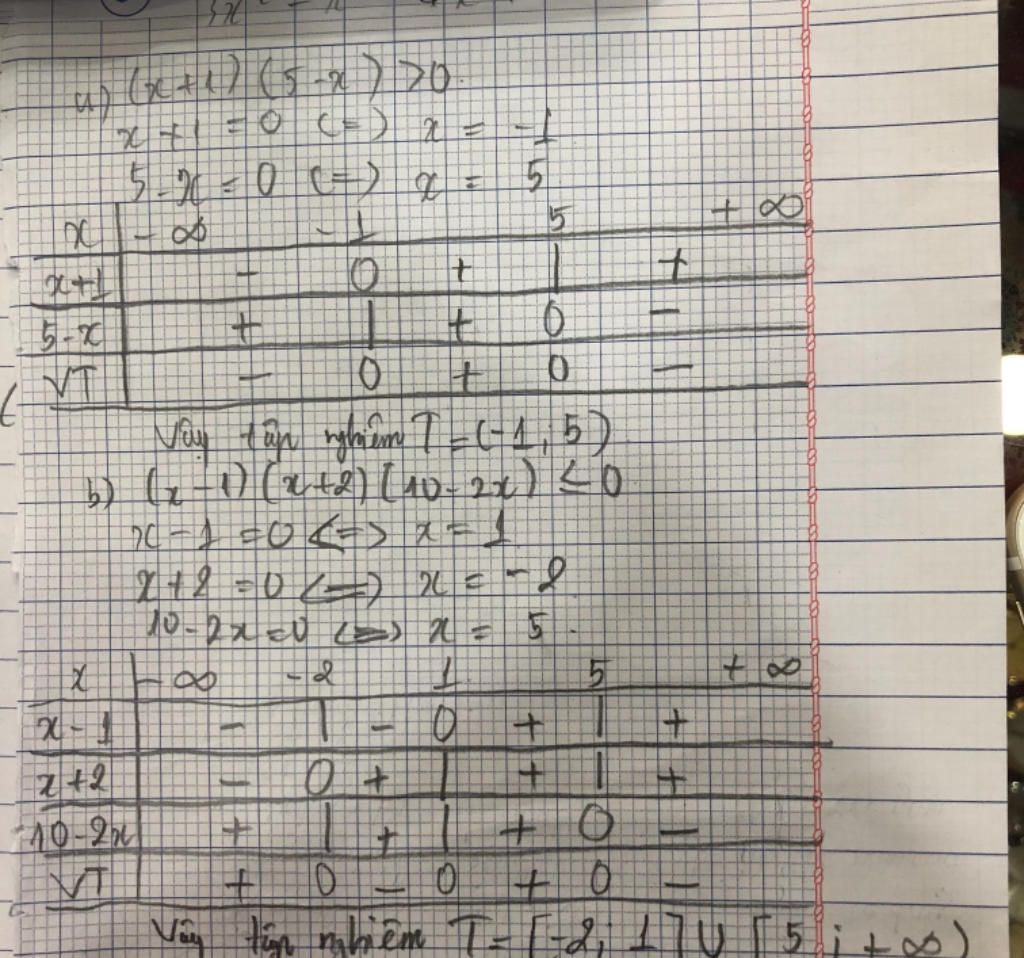 a) (x+1)(5-x) >0.
x+1 = 0 (=) x = -1
5-x = 0 (=) x = 5
x -∞ -1 5 +∞
x+1 - 0 + | +
5-x + | + 0 -
VT - 0 + 0 -
Vậy tập nghiệm T=(-1; 5)
b) (x-1)(x+2)(10-2x) ≤ 0
x-1 = 0 <=> x = 1
x+2 = 0 <=> x = -2
10-2x=0 <=> x = 5.
x -∞ -2 1 5 +∞
x-1 - | - 0 + | +
x+2 - 0 + | + | +
10-2x + | + | + 0 -
VT + 0 - 0 + 0 -
Vậy tập nghiệm T=[-2; 1]∪[5; +∞)